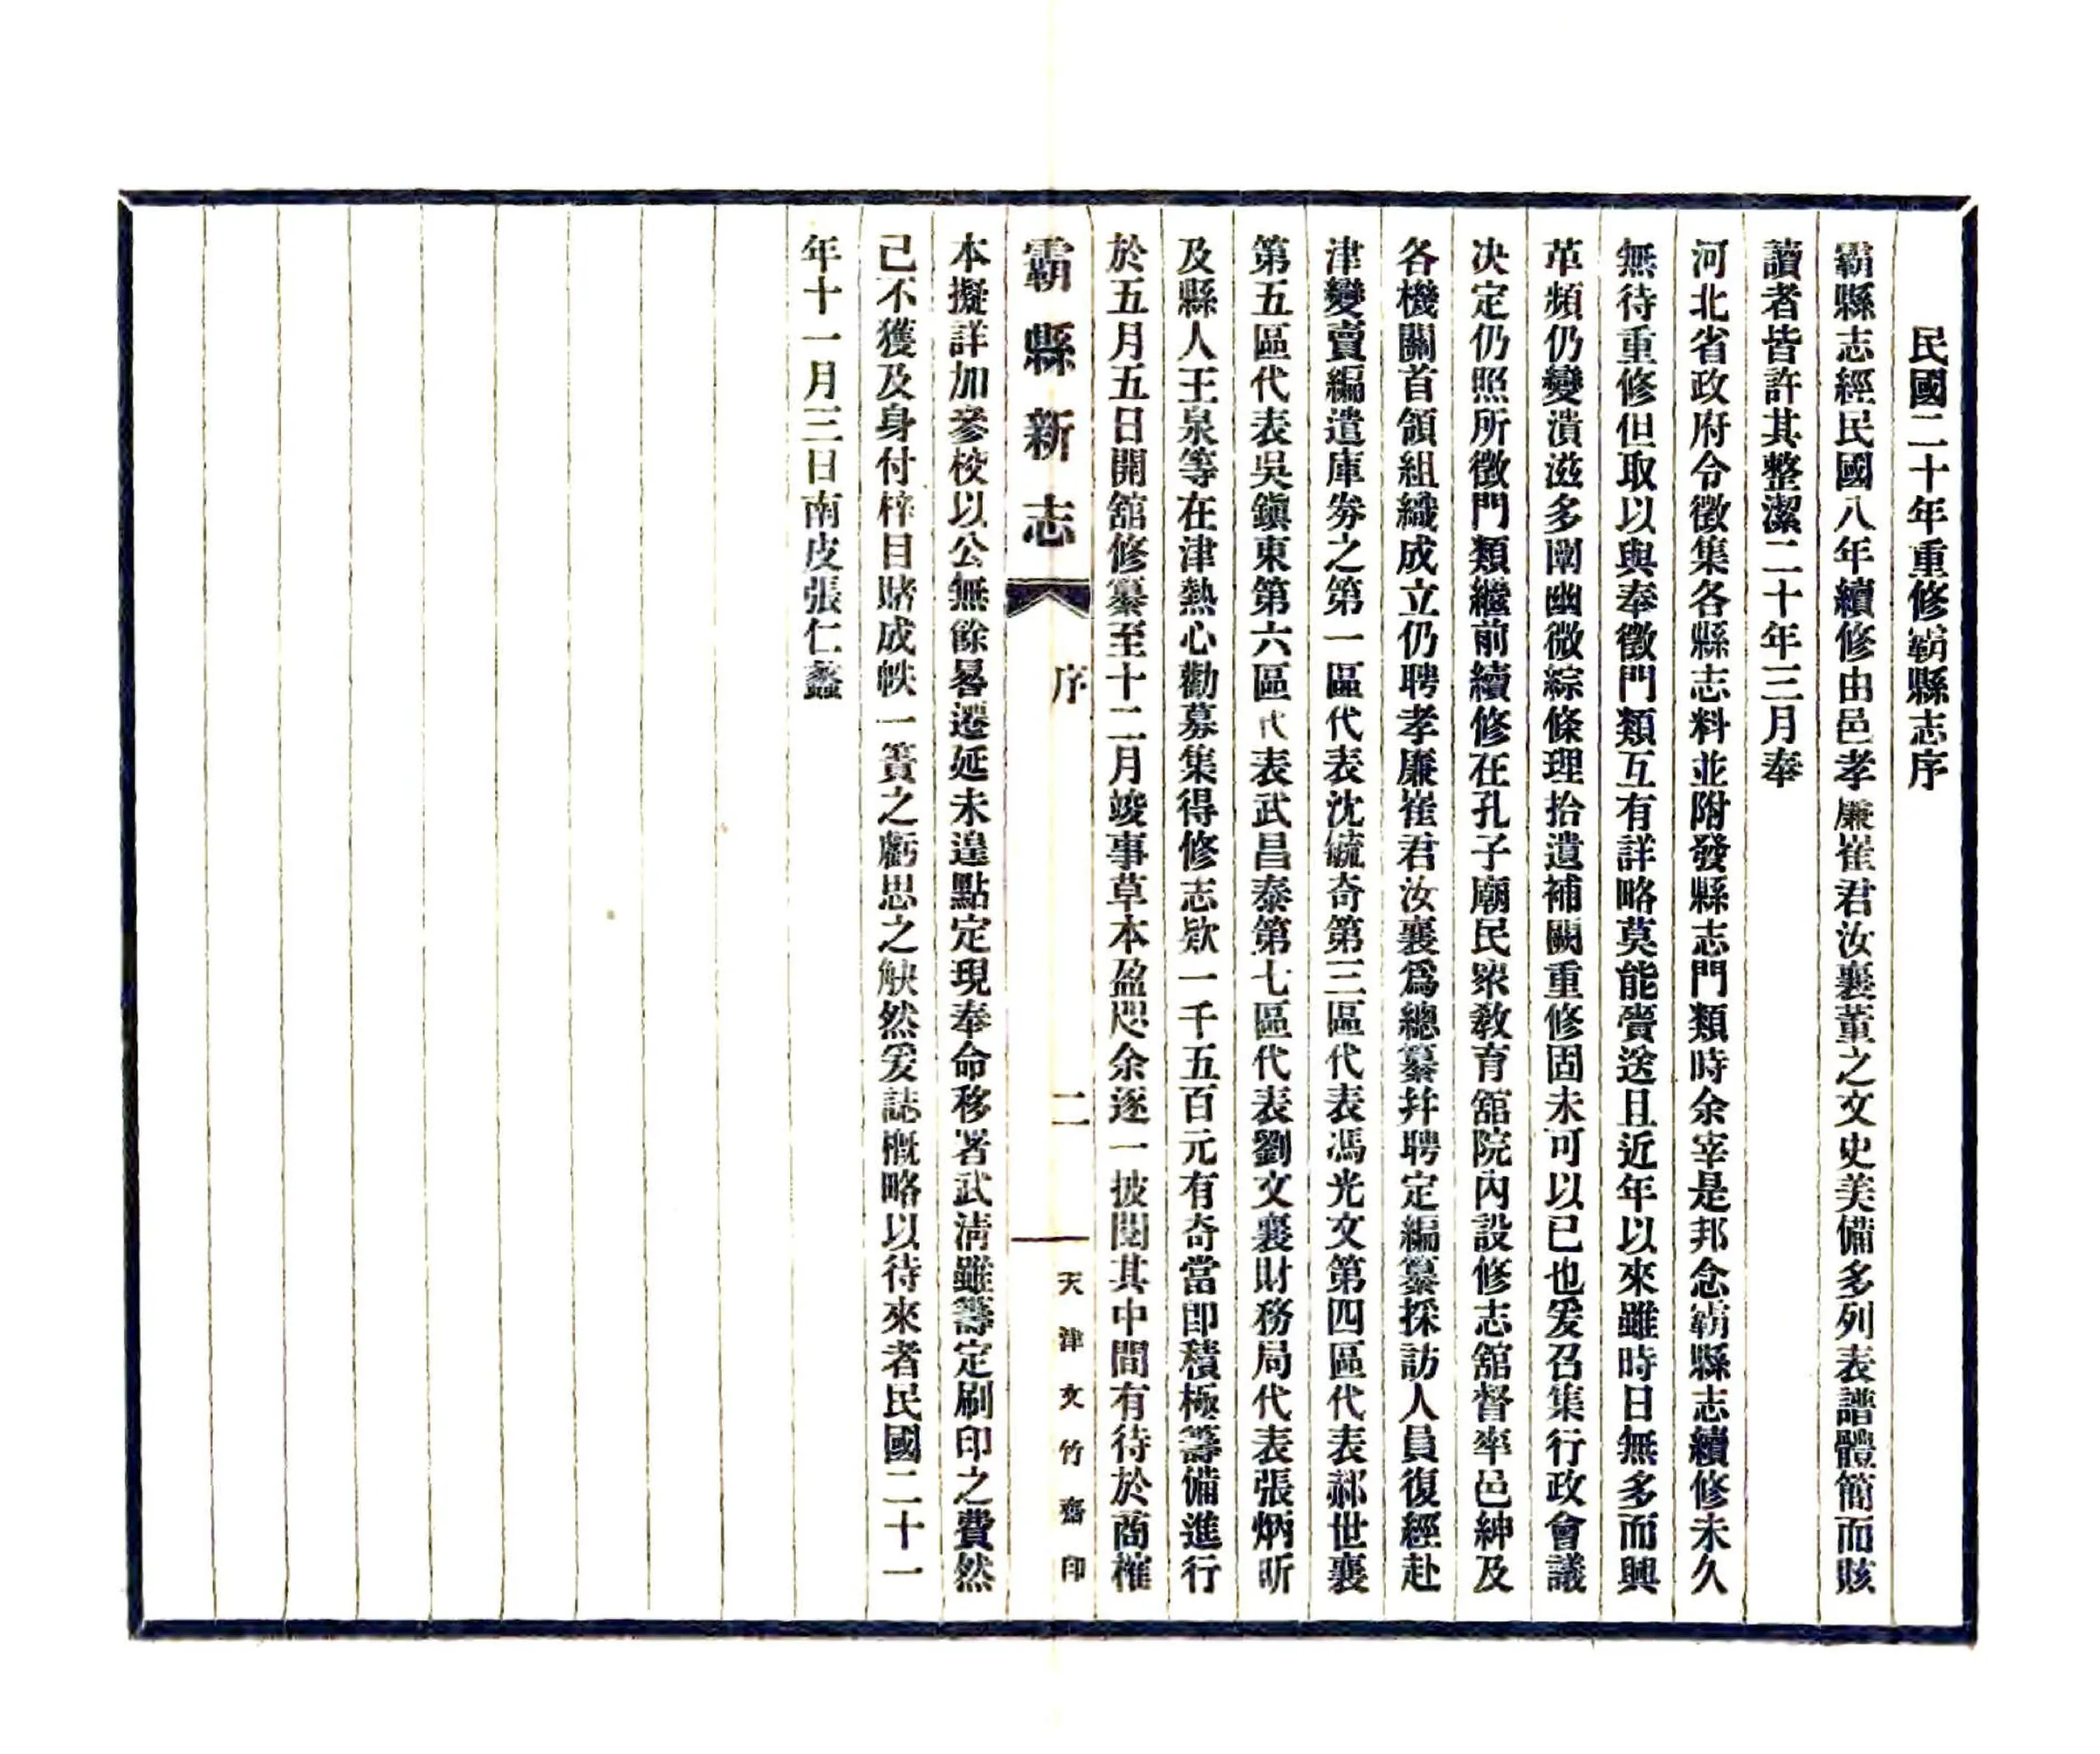 民國二十年重修霸縣志序
霸縣志經民國八年續修由邑孝廉崔君汝襄董之文史美備多列表譜體簡而賅
讀者皆許其整潔二十年三月奉
河北省政府令徵集各縣志料並附發縣志門類時余宰是邦念霸縣志續修未久
無待重修但取以與奉徵門類互有詳略莫能賫送且近年以來雖時日無多而興
革頻仍變潰滋多闡幽微綜條理拾遺補闕重修固未可以已也爰召集行政會議
决定仍照所徵門類繼前續修在孔子廟民衆敎育舘院內設修志舘督率邑紳及
各機關首領組織成立仍聘孝廉崔君汝襄爲總纂幷聘定編纂採訪人員復經赴
津變賣編遣庫券之第一區代表沈毓奇第三區代表馮光文第四區代表郝世襄
第五區代表吳鎭東第六區代表武昌泰第七區代表劉文襄財務局代表張炳昕
及縣人王泉等在津熱心勸募集得修志欵一千五百元有奇當即積極籌備進行
於五月五日開舘修纂至十二月竣事草本盈咫余逐一披閱其中間有待於商榷
霸縣新志 序 二 天津文竹齋印
本擬詳加參校以公無餘晷遷延未遑點定現奉命移署武淸雖籌定刷印之費然
己不獲及身付梓目賭成帙一簣之虧思之觖然爰誌槪略以待來者民國二十一
年十一月三日南皮張仁蠡